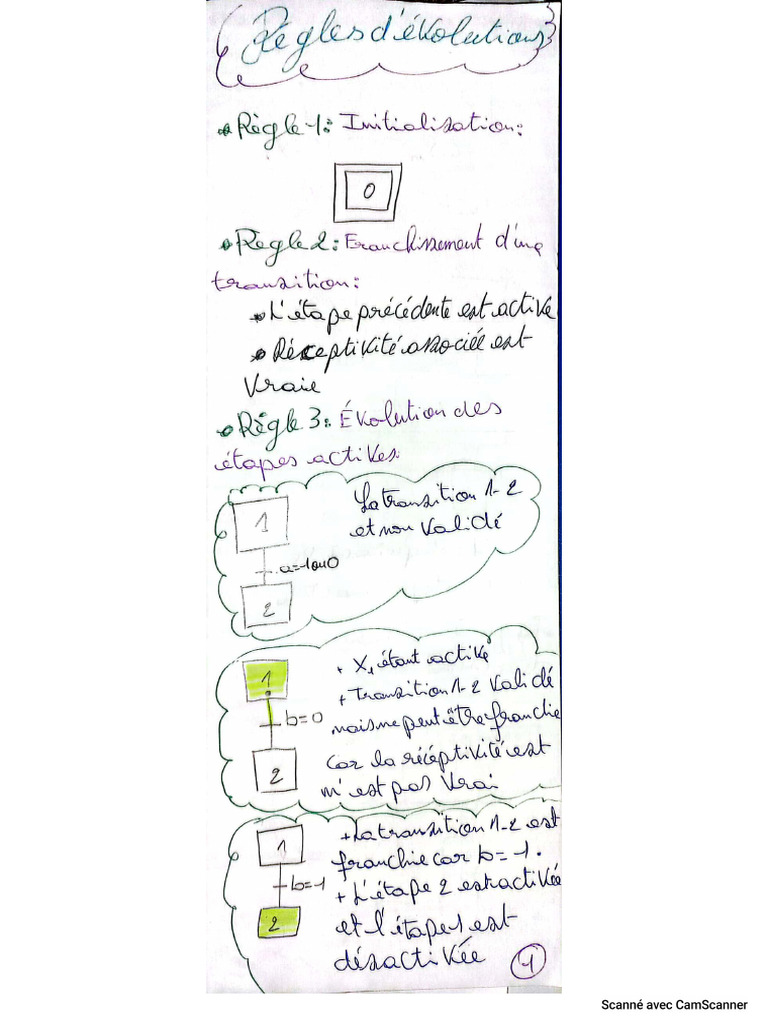 Règles d'évolutions
Règle 1: Initialisation:
0
Règle 2: Franchissement d'une
transition:
L'étape précédente est active
Réceptivité associée est
Vraie
Règle 3: Évolution des
étapes actives:
1
La transition 1-2
et non Validé
a=1 ou 0
2
1
+ X1 étant active
+ Transition 1-2 Validé
b=0
mais ne peut être franchie
2
car la réceptivité est
n'est pas Vrai
1
+ La transition 1-2 est
franchie car b=1.
b=1
+ L'étape 2 est activée
2
et l'étape 1 est
désactivée
1
Scanné avec CamScanner